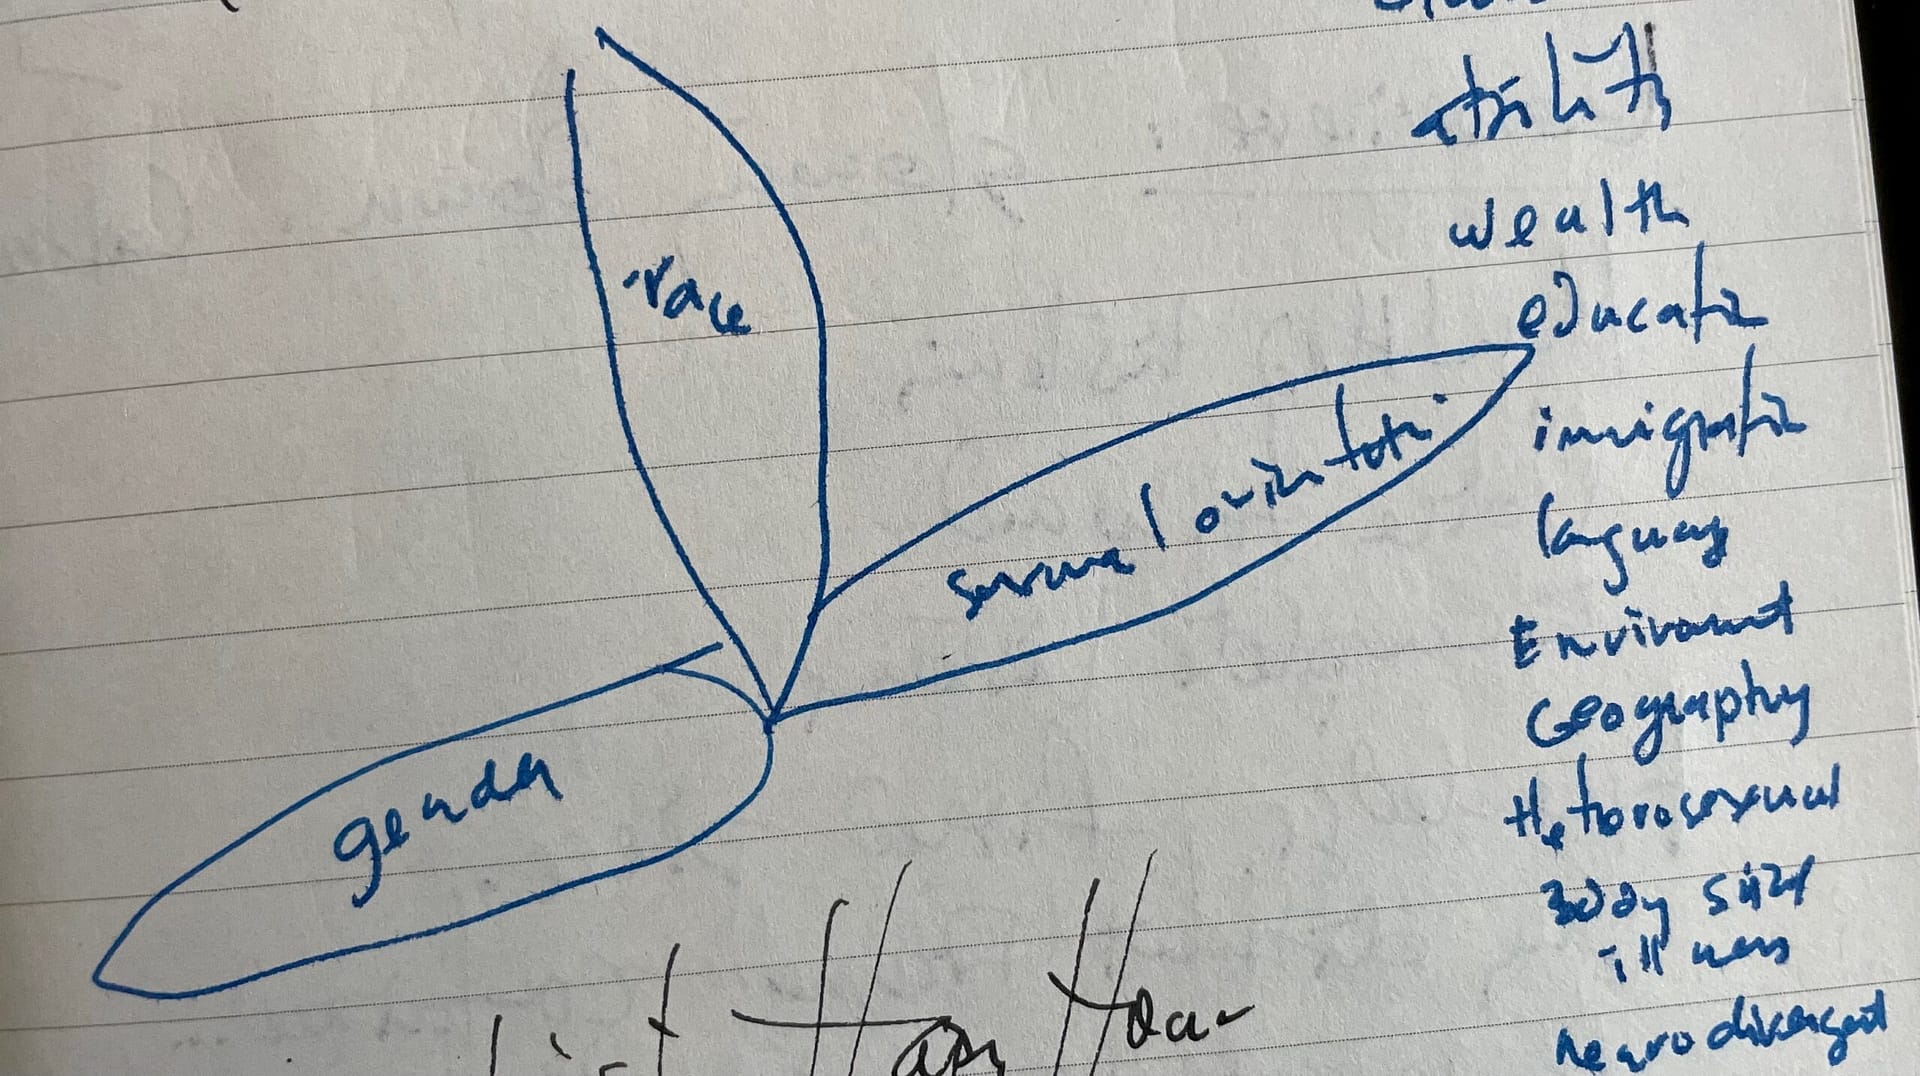 ability
wealth
race
education
sexual orientation
immigration
language
Environment
Geography
gender
Heterosexual
Body size
illness
neurodivergent